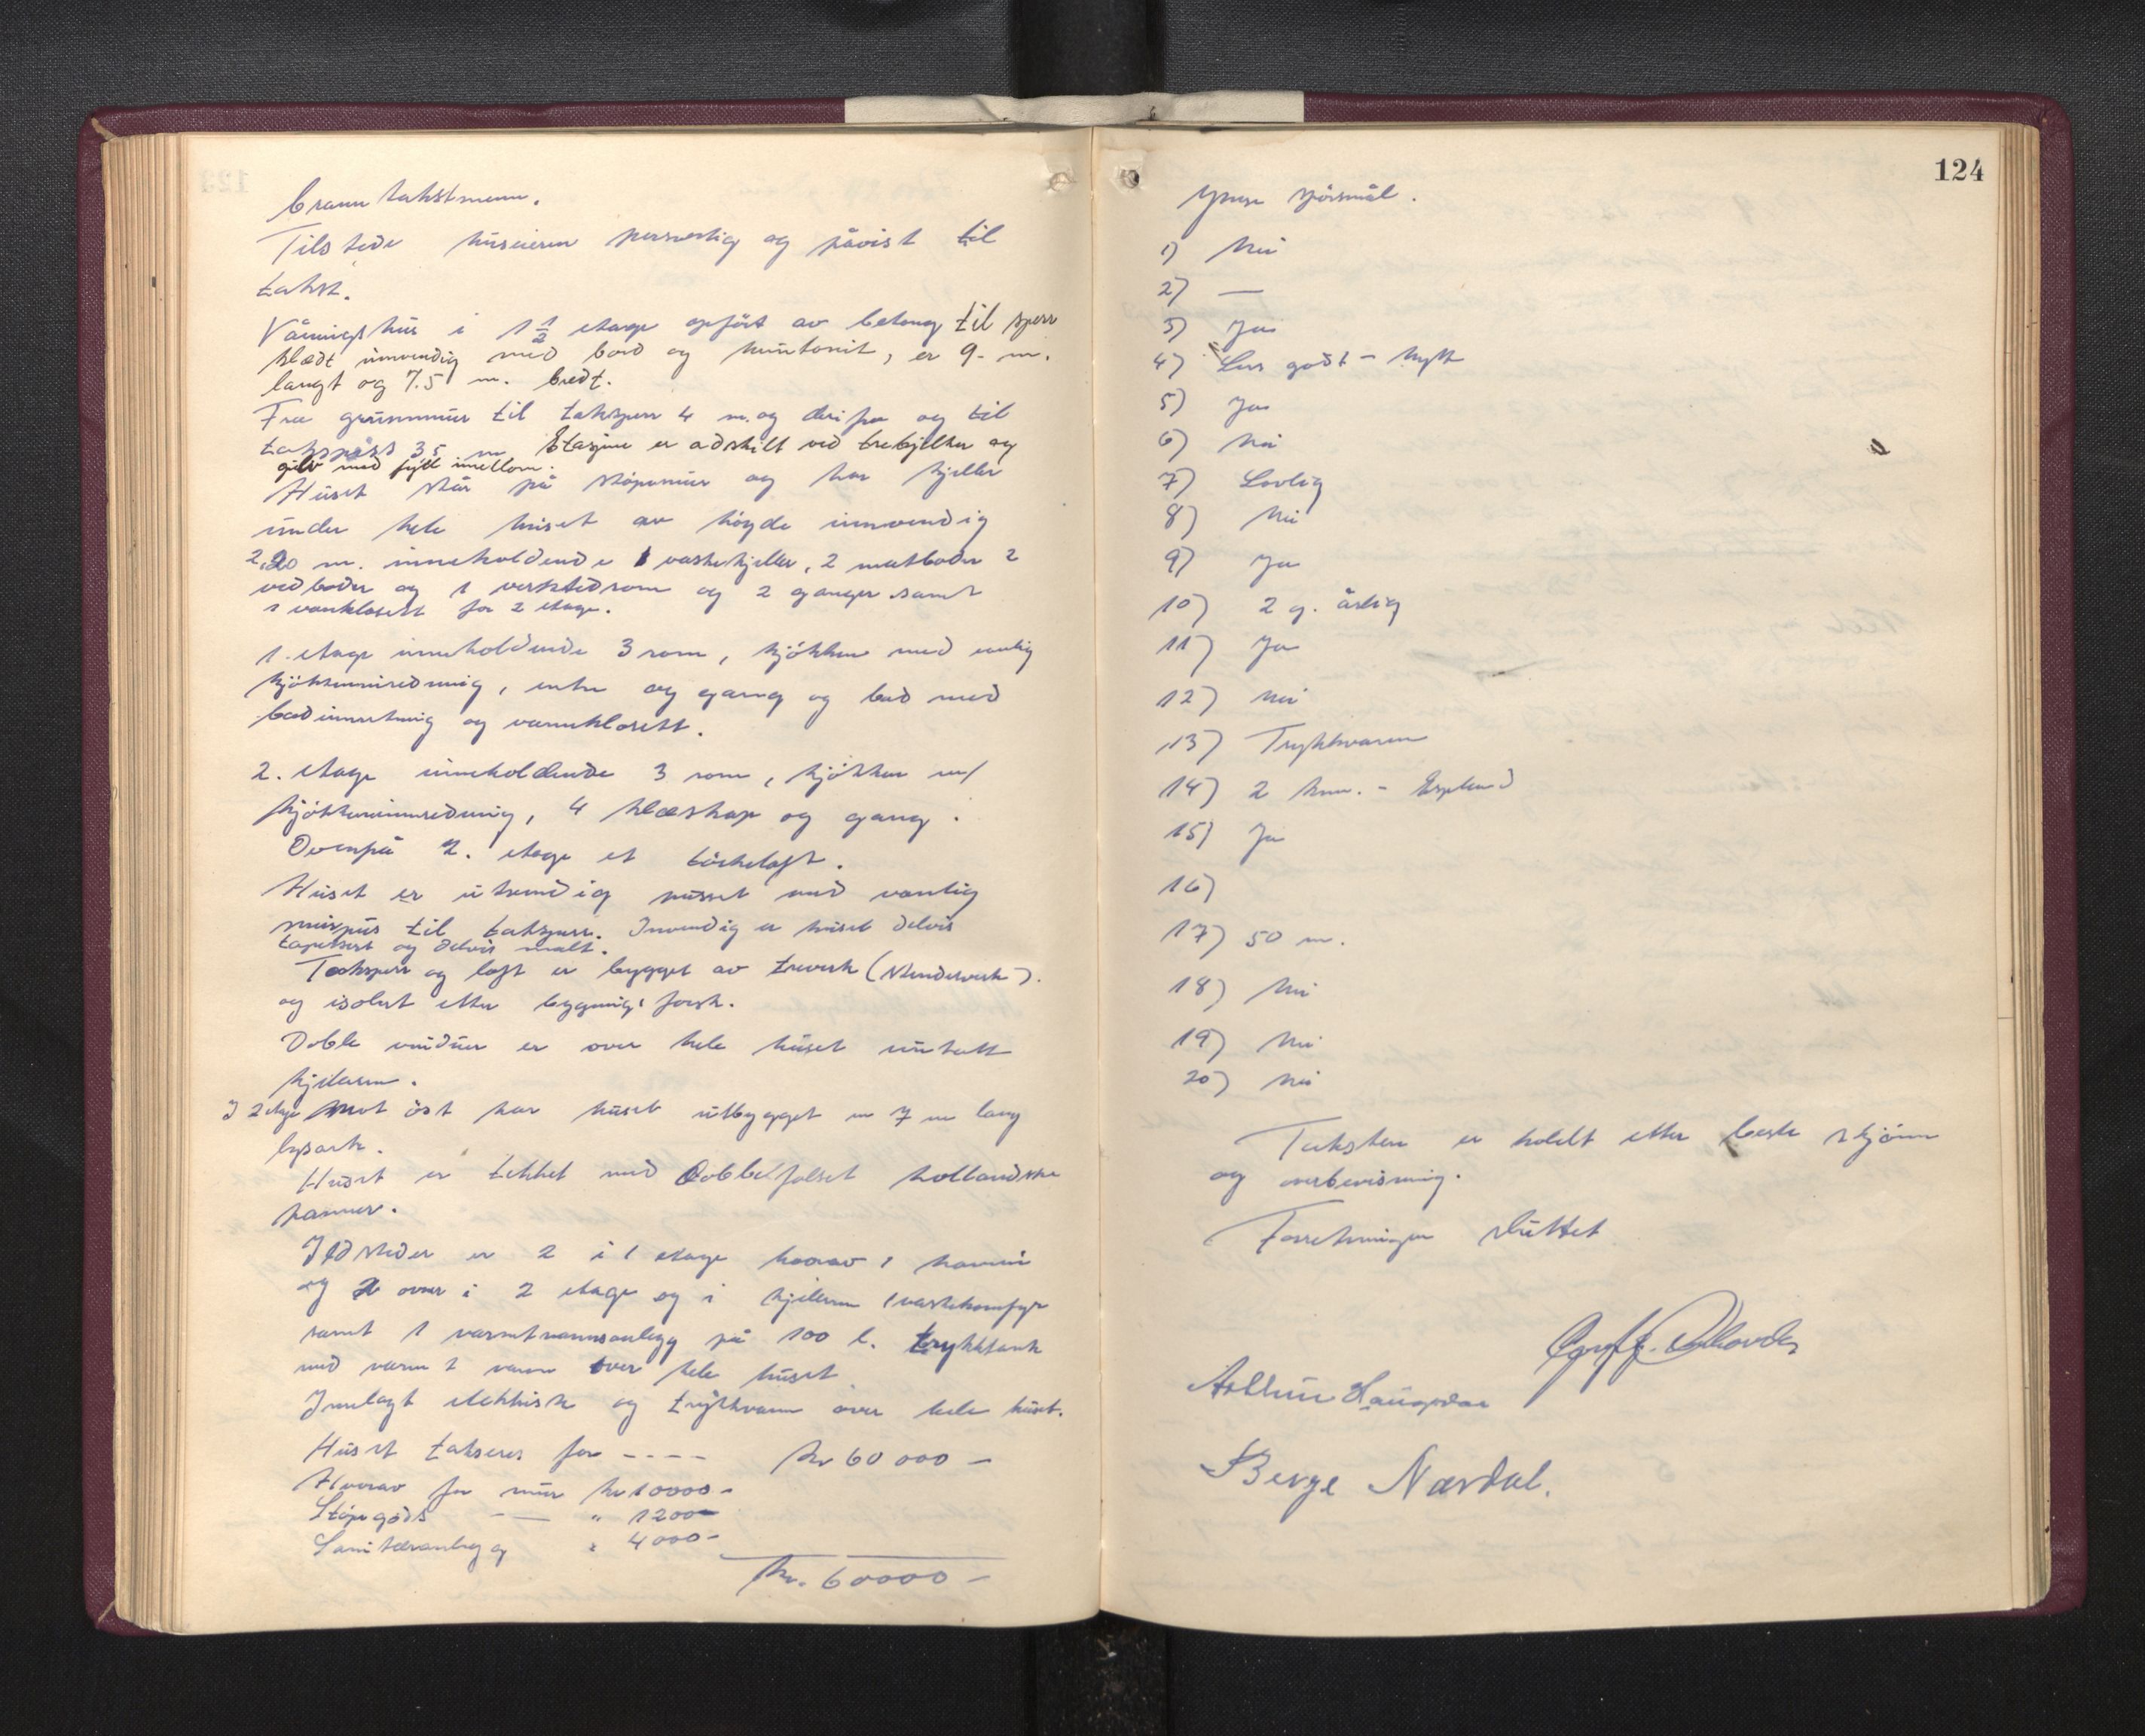 branntakstmenn.
Tilstede huseieren personlig og påvist til
takst.
Våningshus i 1 1/2 etage opført av betong til sperr
klædt innvendig med bord og huntonit, er 9- m.
langt og 7.5 m. bredt.
Fra grunnmur til taksperr 4 m. og derifra og til
takspåss 3 5 m Etasjene er adskilt ved trebjelker og
gulv med fyll imellom.
Huset står på støpemur og har kjeller
under hele huset av høyde innvendig
2,20 m. inneholdende 1 vaskekjeller, 2 matboder 2
vedboder og 1 verkstedrom og 2 ganger samt
1 vannklosett for 2 etage.
1. etage inneholdende 3 rom, kjøkken med vanlig
kjøkkeninnredning, entre og gang og bad med
badinnretning og vannklosett.
2. etage inneholdende 3 rom, kjøkken m/
kjøkkeninnredning, 4 klæskap og gang.
Ovenpå 2. etage et tørkeloft.
Huset er utvendig pusset med vanlig
murpus til taksperr. Innvendig er huset delvis
tapetsert og delvis malt.
Taksperr og loft er bygget av treverk (stenderverk).
og isolert etter bygnings forsk.
Doble vinduer er over hele huset untatt
kjelleren.
I 2 etage mot øst har huset utbygget en 7 m lang
lysark.
Huset er tekket med dobbelfalset hollandske
panner.
Ildsteder er 2 i 1 etage hvorav 1 kamin
og 2 ovner i 2 etage og i kjelleren 1 vaskekomfyr
samt 1 varmtvannsanlegg på 100 l. trykktank
med varmt vann over hele huset
Innlagt elektrisk og trykkvann over hele huset.
Huset takseres for - - - - kr 60 000 -
Hvorav for mur kr 10000-
Støpegods - — " 1200-
Sanitæranlegg " 4000-
Kr. 60000 -
124
Ymse spørsmål.
1) Nei
2) —
3) Ja
4) Lus godt - nytt
5) Ja
6) Nei
7) Lovlig
8) Nei
9) Ja
10) 2 g. årlig
11) Ja
12) Nei
13) Trykkvann
14) 2 km. -
15) Ja
16)
17) 50 m.
18) Nei
19) Nei
20) Nei
Taksten er holdt etter beste skjønn
og overbevisning.
Forretningen sluttet
Børge Nærdal.